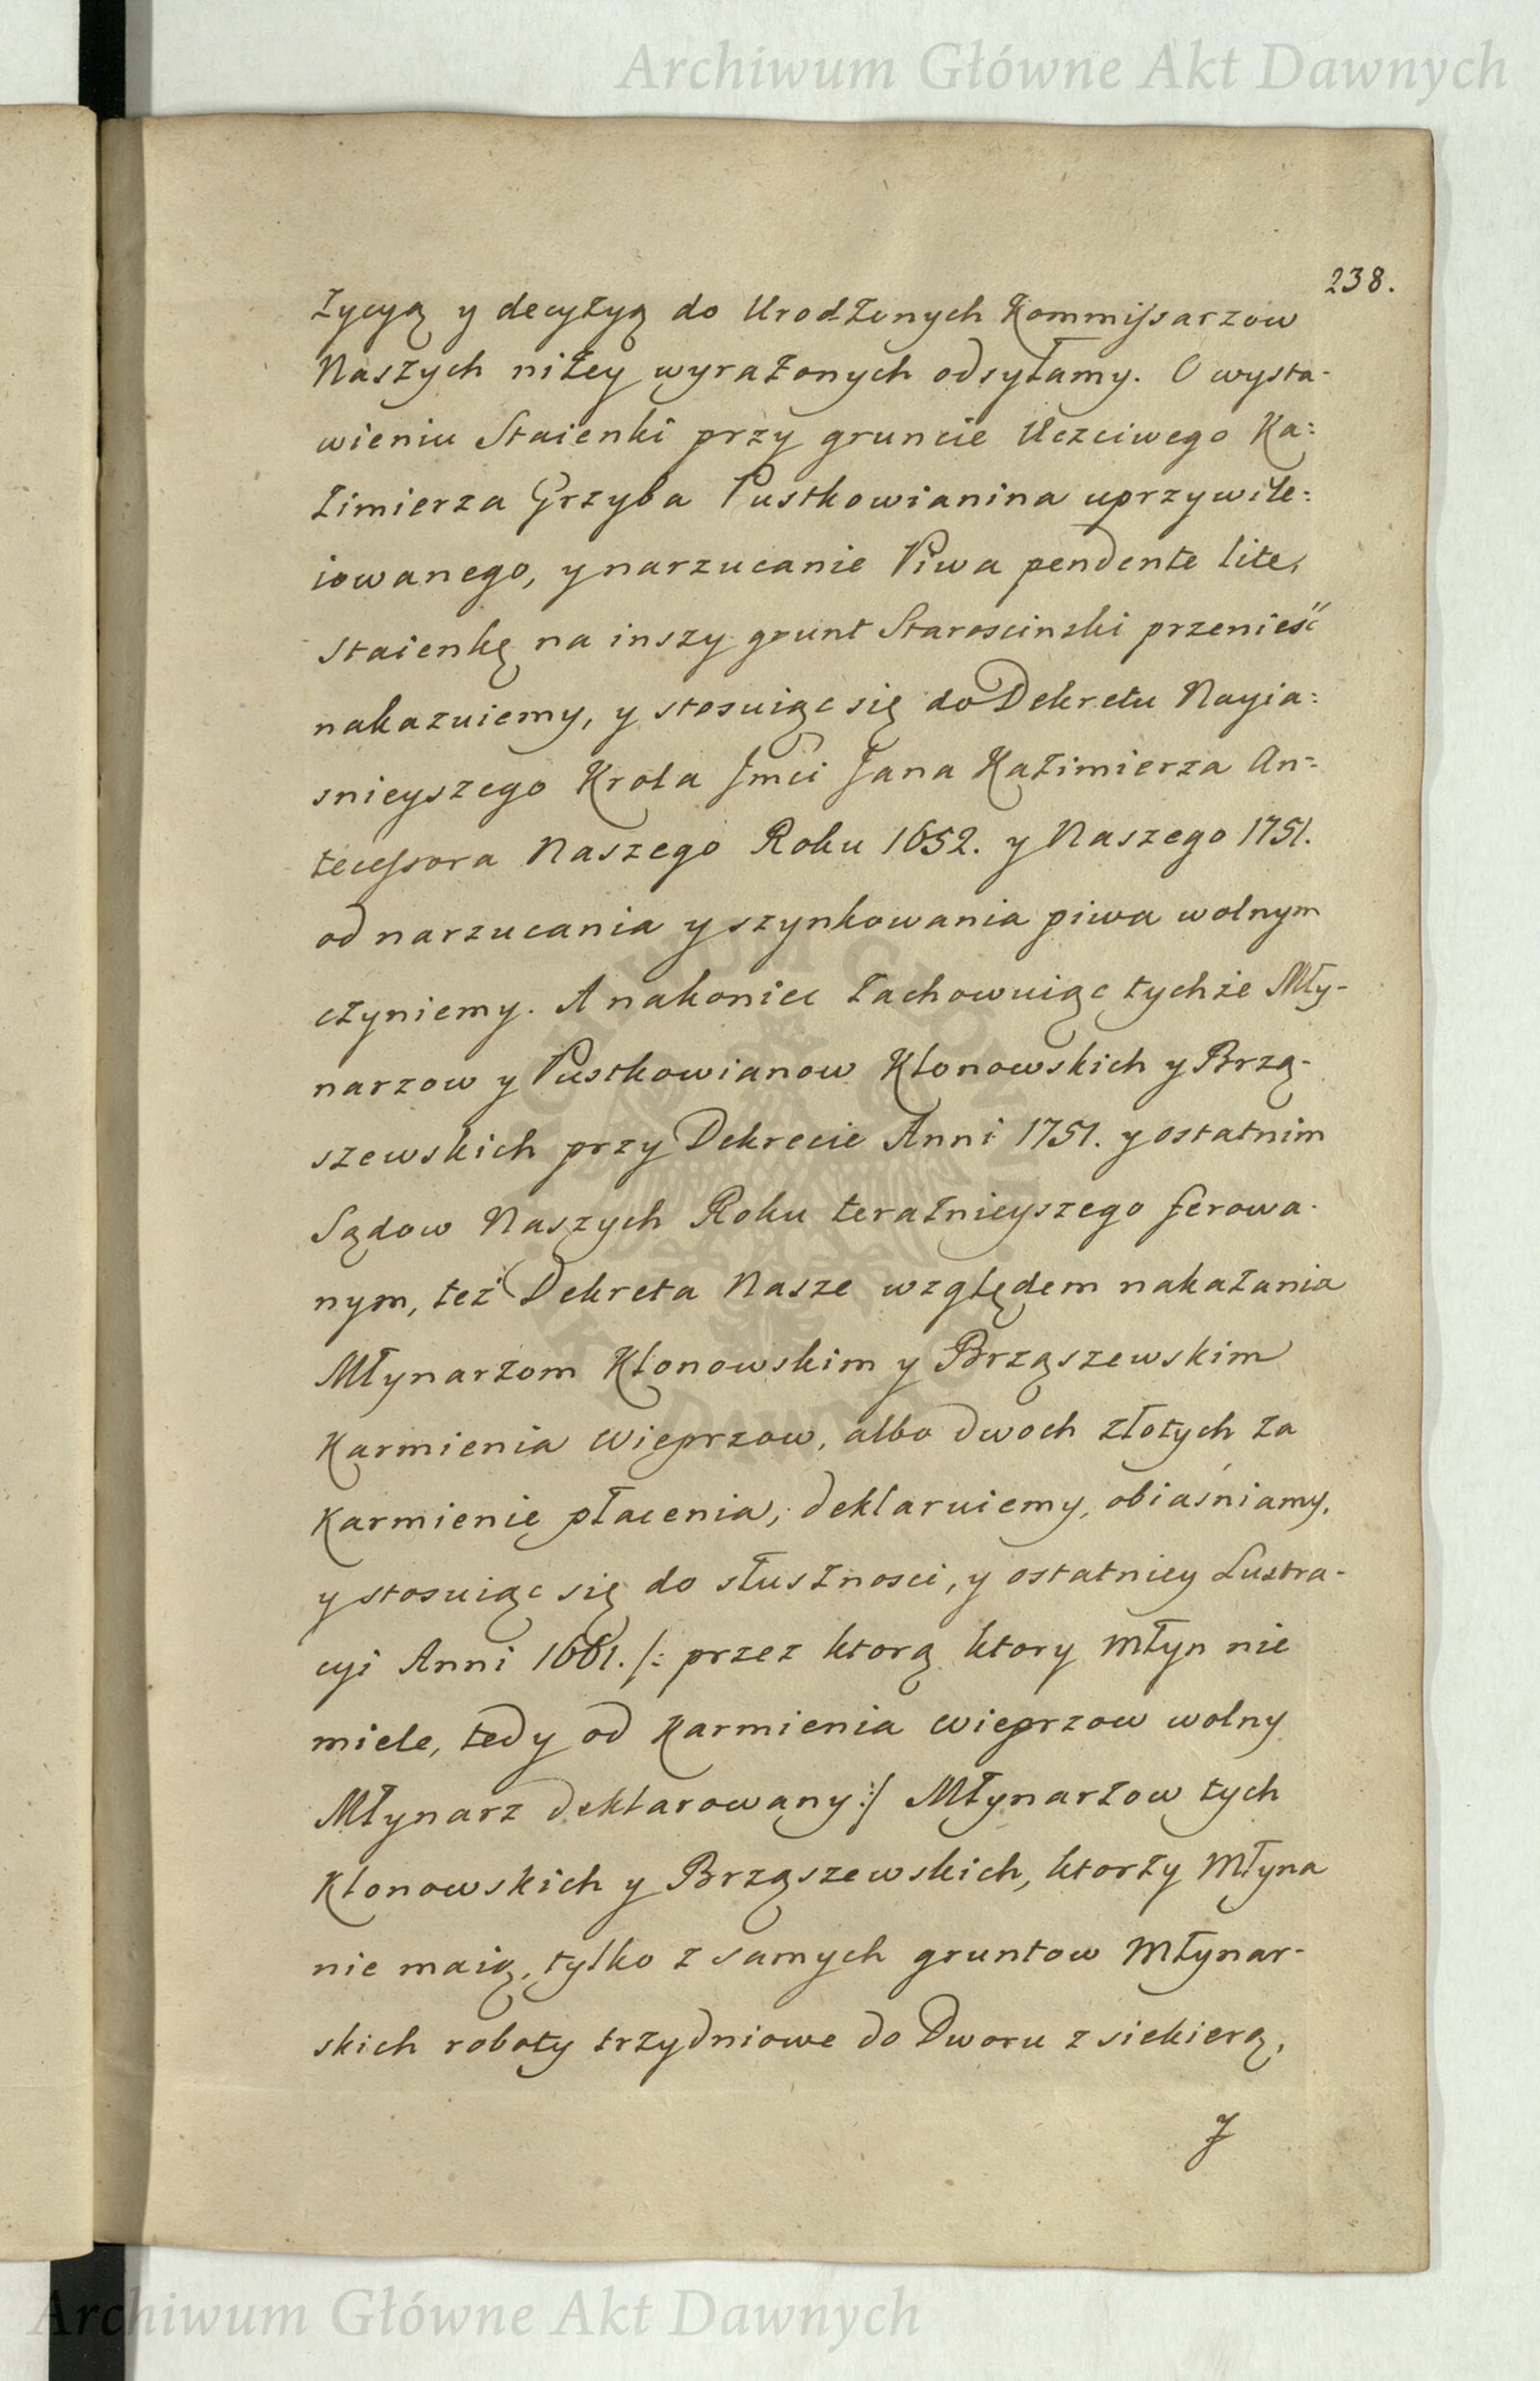 Archiwum Główne Akt Dawnych
238.
życyą y decyżyą do Urodżonych Kommissarzow
Naszych niżey wyrażonych odsyłamy. O wysta-
wieniu Staienki przy gruncie Uczciwego Ka=
żimierza Grzyba Pustkowianina uprzywile=
iowanego, y narzucanie Piwa pendente lite,
staienkę na inszy grunt Starościnski przenieść
nakazuiemy, y stosuiąc się do Dekretu Nayia=
snieyszego Krola Jmci Jana Każimierza An=
tecessora Naszego Roku 1652. y Naszego 1751.
od narzucania y szynkowania piwa wolnym
czyniemy. A nakoniec zachowuiąc tychże Mły-
narzow y Pustkowianow Klonowskich y Brzą-
szewskich przy Dekrecie Anni 1751. y ostatnim
Sądow Naszych Roku teraźnieyszego ferowa-
nym, też Dekreta Nasze względem nakażania
Młynarzom Klonowskim y Brząszewskim
Karmienia Wieprzow, albo dwoch złotych za
Karmienie płacenia, deklaruiemy, obiaśniamy,
y stosuiąc się do słusznosci, y ostatniey Lustra-
cyi Anni 1661. /: przez ktorą ktory Młyn nie
miele, tedy od Karmienia Wieprzow wolny
Młynarz deklarowany :/ Młynarzow tych
Klonowskich y Brząszewskich, ktorzy Młyna
nie maią, tylko z samych gruntow Młynar-
skich roboty trzydniowe do Dworu z siekierą,
y
Archiwum Główne Akt Dawnych